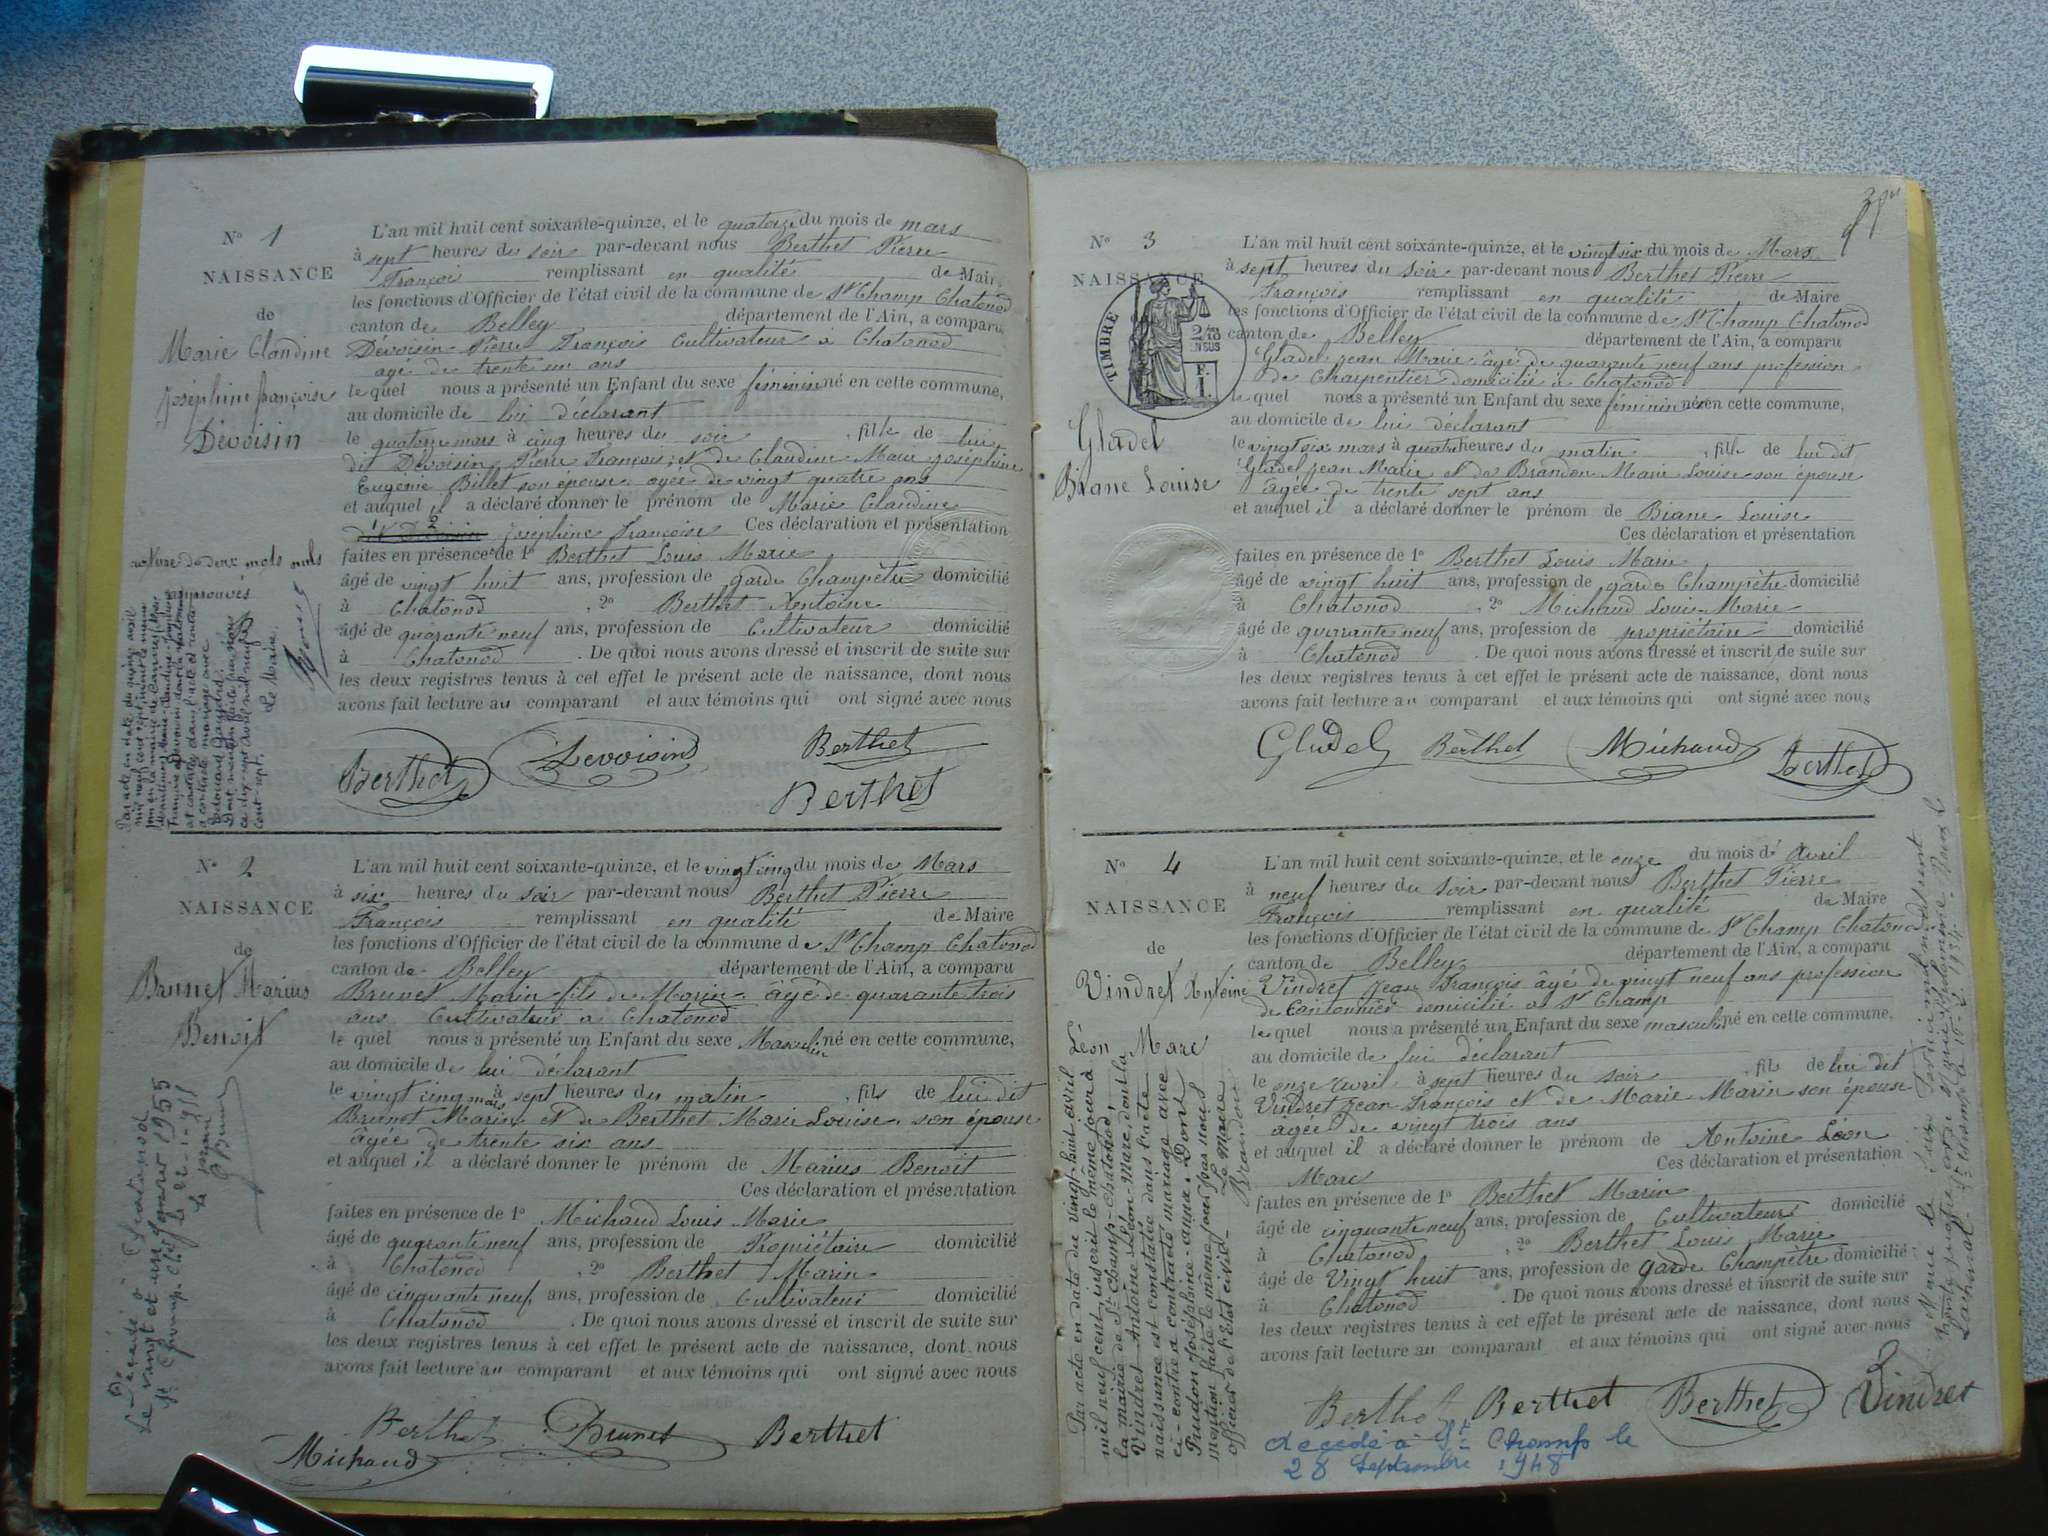 N° 1
NAISSANCE
de
Marie Claudine
Joséphine françoise
Dévoisin
L'an mil huit cent soixante-quinze, et le quatorze du mois de mars
à sept heures du soir par-devant nous Berthet Pierre
François remplissant en qualité de Maire
les fonctions d'Officier de l'état civil de la commune de St Champ Chatonod
canton de Belley département de l'Ain, a comparu
Dévoisin Pierre François Cultivateur à Chatonod
agé de trente un ans
le quel nous a présenté un Enfant du sexe féminin né en cette commune,
au domicile de lui déclarant
le quatorze mars à cinq heures du soir , fille de lui
dit Dévoisin Pierre François, et de Claudine Marie Joséphine
Eugénie Billet son épouse agée de vingt quatre ans
et auquel il a déclaré donner le prénom de Marie Claudine
Joséphine Françoise Ces déclaration et présentation
faites en présence de 1° Berthet Louis Marie
âgé de vingt huit ans, profession de garde Champêtre domicilié
à Chatonod , 2° Berthet Antoine
âgé de quarante neuf ans, profession de Cultivateur domicilié
à Chatonod . De quoi nous avons dressé et inscrit de suite sur
les deux registres tenus à cet effet le présent acte de naissance, dont nous
avons fait lecture au comparant et aux témoins qui ont signé avec nous
de deux mots nuls
approuvés
Le Maire
Berthet Devoisin Berthet
Berthet
N° 2
NAISSANCE
de
Brunet Marius
Benoit
L'an mil huit cent soixante-quinze, et le vingt cinq du mois de Mars
à six heures du soir par-devant nous Berthet Pierre
François remplissant en qualité de Maire
les fonctions d'Officier de l'état civil de la commune de St Champ Chatonod
canton de Belley département de l'Ain, a comparu
Brunet Marin fils de Marin âgé de quarante trois
ans Cultivateur à Chatonod
le quel nous a présenté un Enfant du sexe Masculin né en cette commune,
au domicile de lui déclarant
le vingt cinq mars à sept heures du matin , fils de lui dit
Brunet Marin et de Berthet Marie Louise son épouse
âgée de trente six ans
et auquel il a déclaré donner le prénom de Marius Benoit
Ces déclaration et présentation
faites en présence de 1° Michaud Louis Marie
âgé de quarante neuf ans, profession de Propriétaire domicilié
à Chatonod , 2° Berthet Marin
âgé de cinquante neuf ans, profession de Cultivateur domicilié
à Chatonod . De quoi nous avons dressé et inscrit de suite sur
les deux registres tenus à cet effet le présent acte de naissance, dont nous
avons fait lecture au comparant et aux témoins qui ont signé avec nous
Décédé à Chatonod
le vingt et un janvier 1955
St Champ Chat le 22-1-
Berthet Brunet Berthet
Michaud
N° 3
NAISSANCE
TIMBRE
Gladel
Biane Louise
L'an mil huit cent soixante-quinze, et le vingt six du mois de Mars
à sept heures du soir par-devant nous Berthet Pierre
François remplissant en qualité de Maire
les fonctions d'Officier de l'état civil de la commune de St Champ Chatonod
canton de Belley département de l'Ain, a comparu
Gladel Jean Marie âgé de quarante neuf ans profession
de Charpentier domicilié à Chatonod
le quel nous a présenté un Enfant du sexe féminin née en cette commune,
au domicile de lui déclarant
le vingt six mars à quatre heures du matin , fille de lui dit
Gladel Jean Marie et de Brandon Marie Louise son épouse
âgée de trente sept ans
et auquel il a déclaré donner le prénom de Biane Louise
Ces déclaration et présentation
faites en présence de 1° Berthet Louis Marie
âgé de vingt huit ans, profession de garde Champêtre domicilié
à Chatonod , 2° Michaud Louis Marie
âgé de quarante neuf ans, profession de propriétaire domicilié
à Chatonod . De quoi nous avons dressé et inscrit de suite sur
les deux registres tenus à cet effet le présent acte de naissance, dont nous
avons fait lecture au comparant et aux témoins qui ont signé avec nous
Gladel Berthet Michaud Berthet
N° 4
NAISSANCE
de
Vindret Antoine
Léon Marc
L'an mil huit cent soixante-quinze, et le onze du mois de Avril
à neuf heures du soir par-devant nous Berthet Pierre
François remplissant en qualité de Maire
les fonctions d'Officier de l'état civil de la commune de St Champ Chatonod
canton de Belley département de l'Ain, a comparu
Vindret Jean François âgé de vingt neuf ans profession
de Cantonnier domicilié à St Champ
le quel nous a présenté un Enfant du sexe masculin né en cette commune,
au domicile de lui déclarant
le onze Avril à sept heures du soir , fils de lui dit
Vindret Jean François et de Marie Marin son épouse
agée de vingt trois ans
et auquel il a déclaré donner le prénom de Antoine Léon
Marc Ces déclaration et présentation
faites en présence de 1° Berthet Marin
âgé de cinquante neuf ans, profession de Cultivateur domicilié
à Chatonod , 2° Berthet Louis Marie
âgé de Vingt huit ans, profession de garde Champêtre domicilié
à Chatonod . De quoi nous avons dressé et inscrit de suite sur
les deux registres tenus à cet effet le présent acte de naissance, dont nous
avons fait lecture au comparant et aux témoins qui ont signé avec nous
Par acte en date du vingt-huit avril
mil neuf cent, inscrit le même jour à
la mairie de St Champ-Chatonod,
Vindret Antoine Léon-Marc, dont la
naissance est constatée dans l'acte
ci-contre a contracté mariage avec
Prudon Joséphine Dont
mention faite le même jour par nous
officier de l'Etat civil. Le Maire
Brandon
Berthet Berthet Berthet Vindret
décédé à St Champ le
28 Septembre 1948